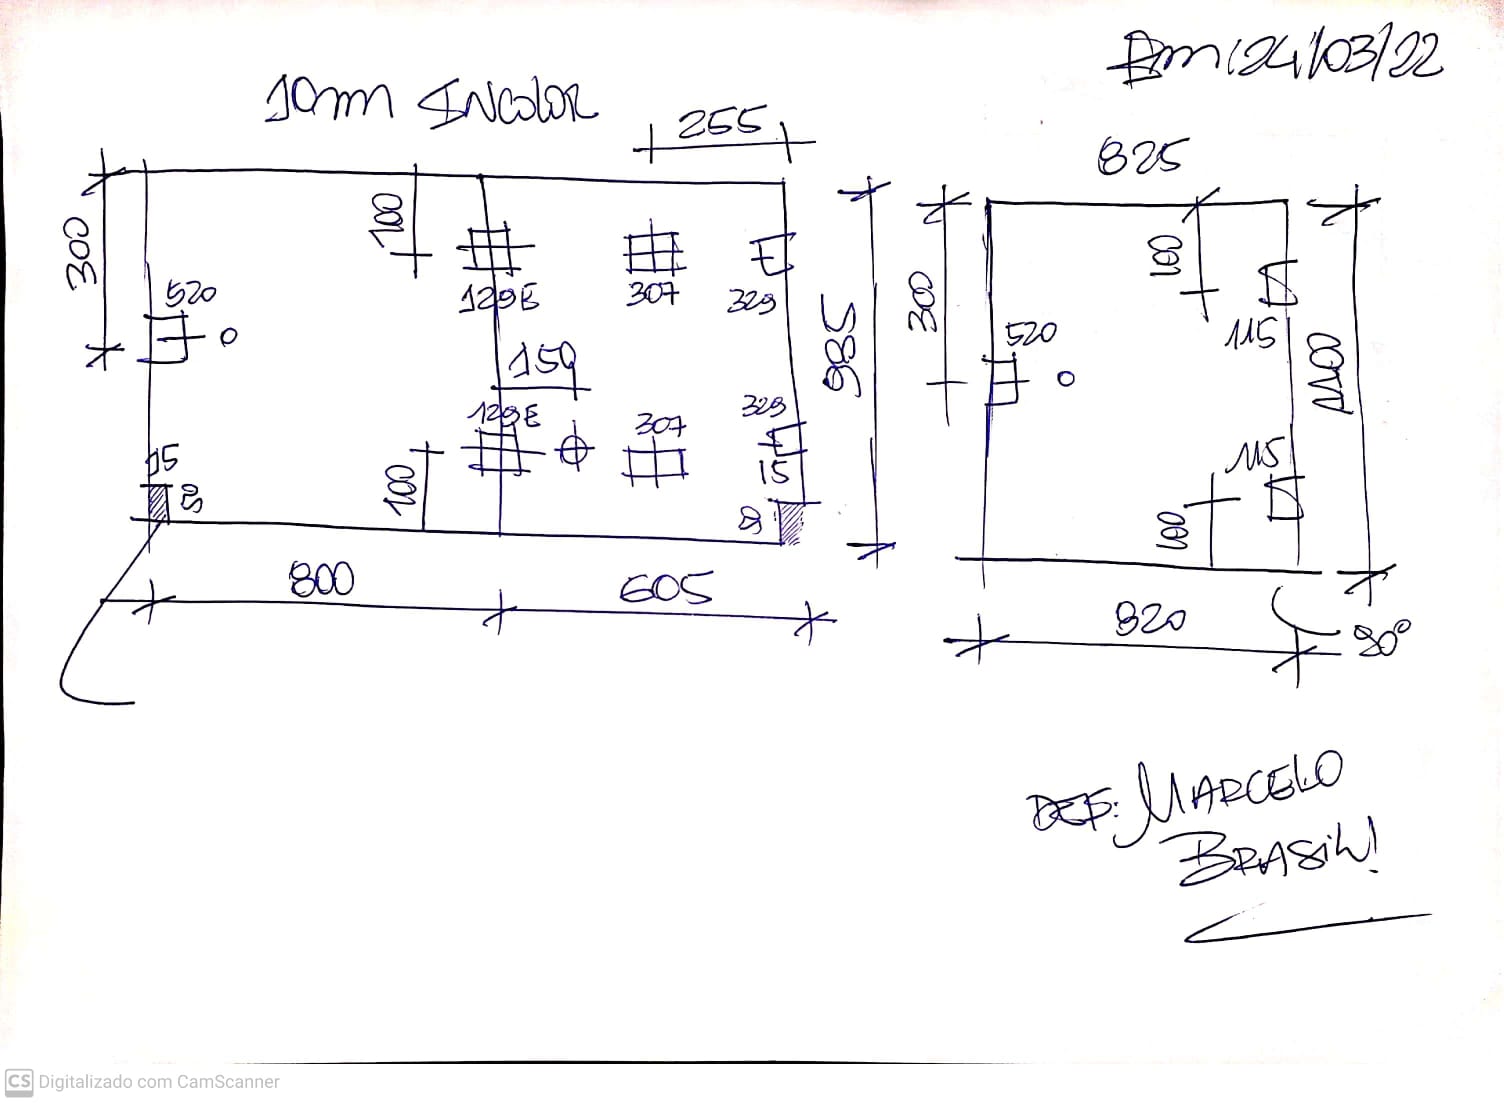 Em: 24/03/22
10mm INCOLOR
255
825
300
100
520
129E
307
329
985
300
100
520
115
1100
150
129E
307
329
15
15
50
100
115
100
800
605
820
90°
REF: MARCELO
BRASIL!
CS Digitalizado com CamScanner